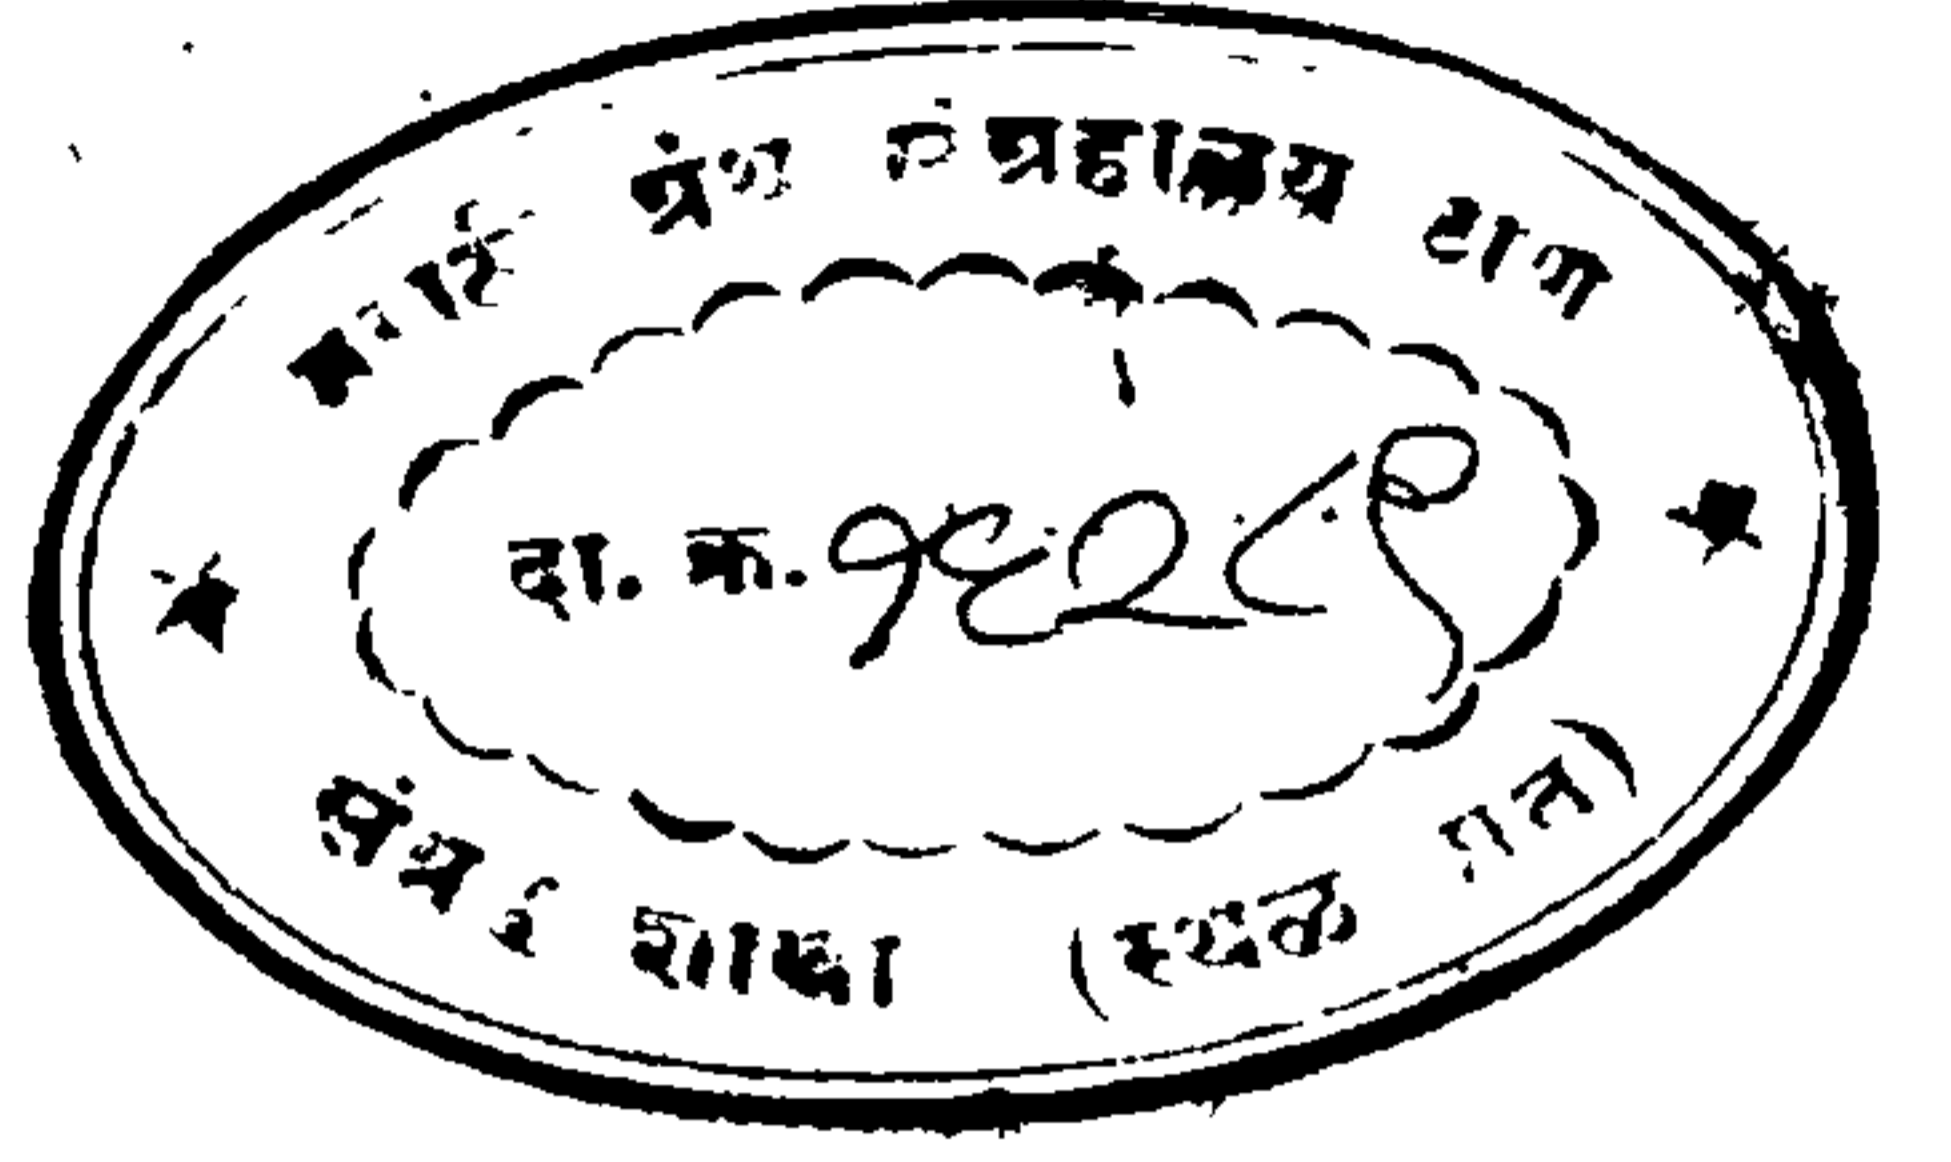 मराठी ग्रंथ संग्रहालय ठाणे
दा. क्र. १९२८१
शाखा (स्थळ प्रत)